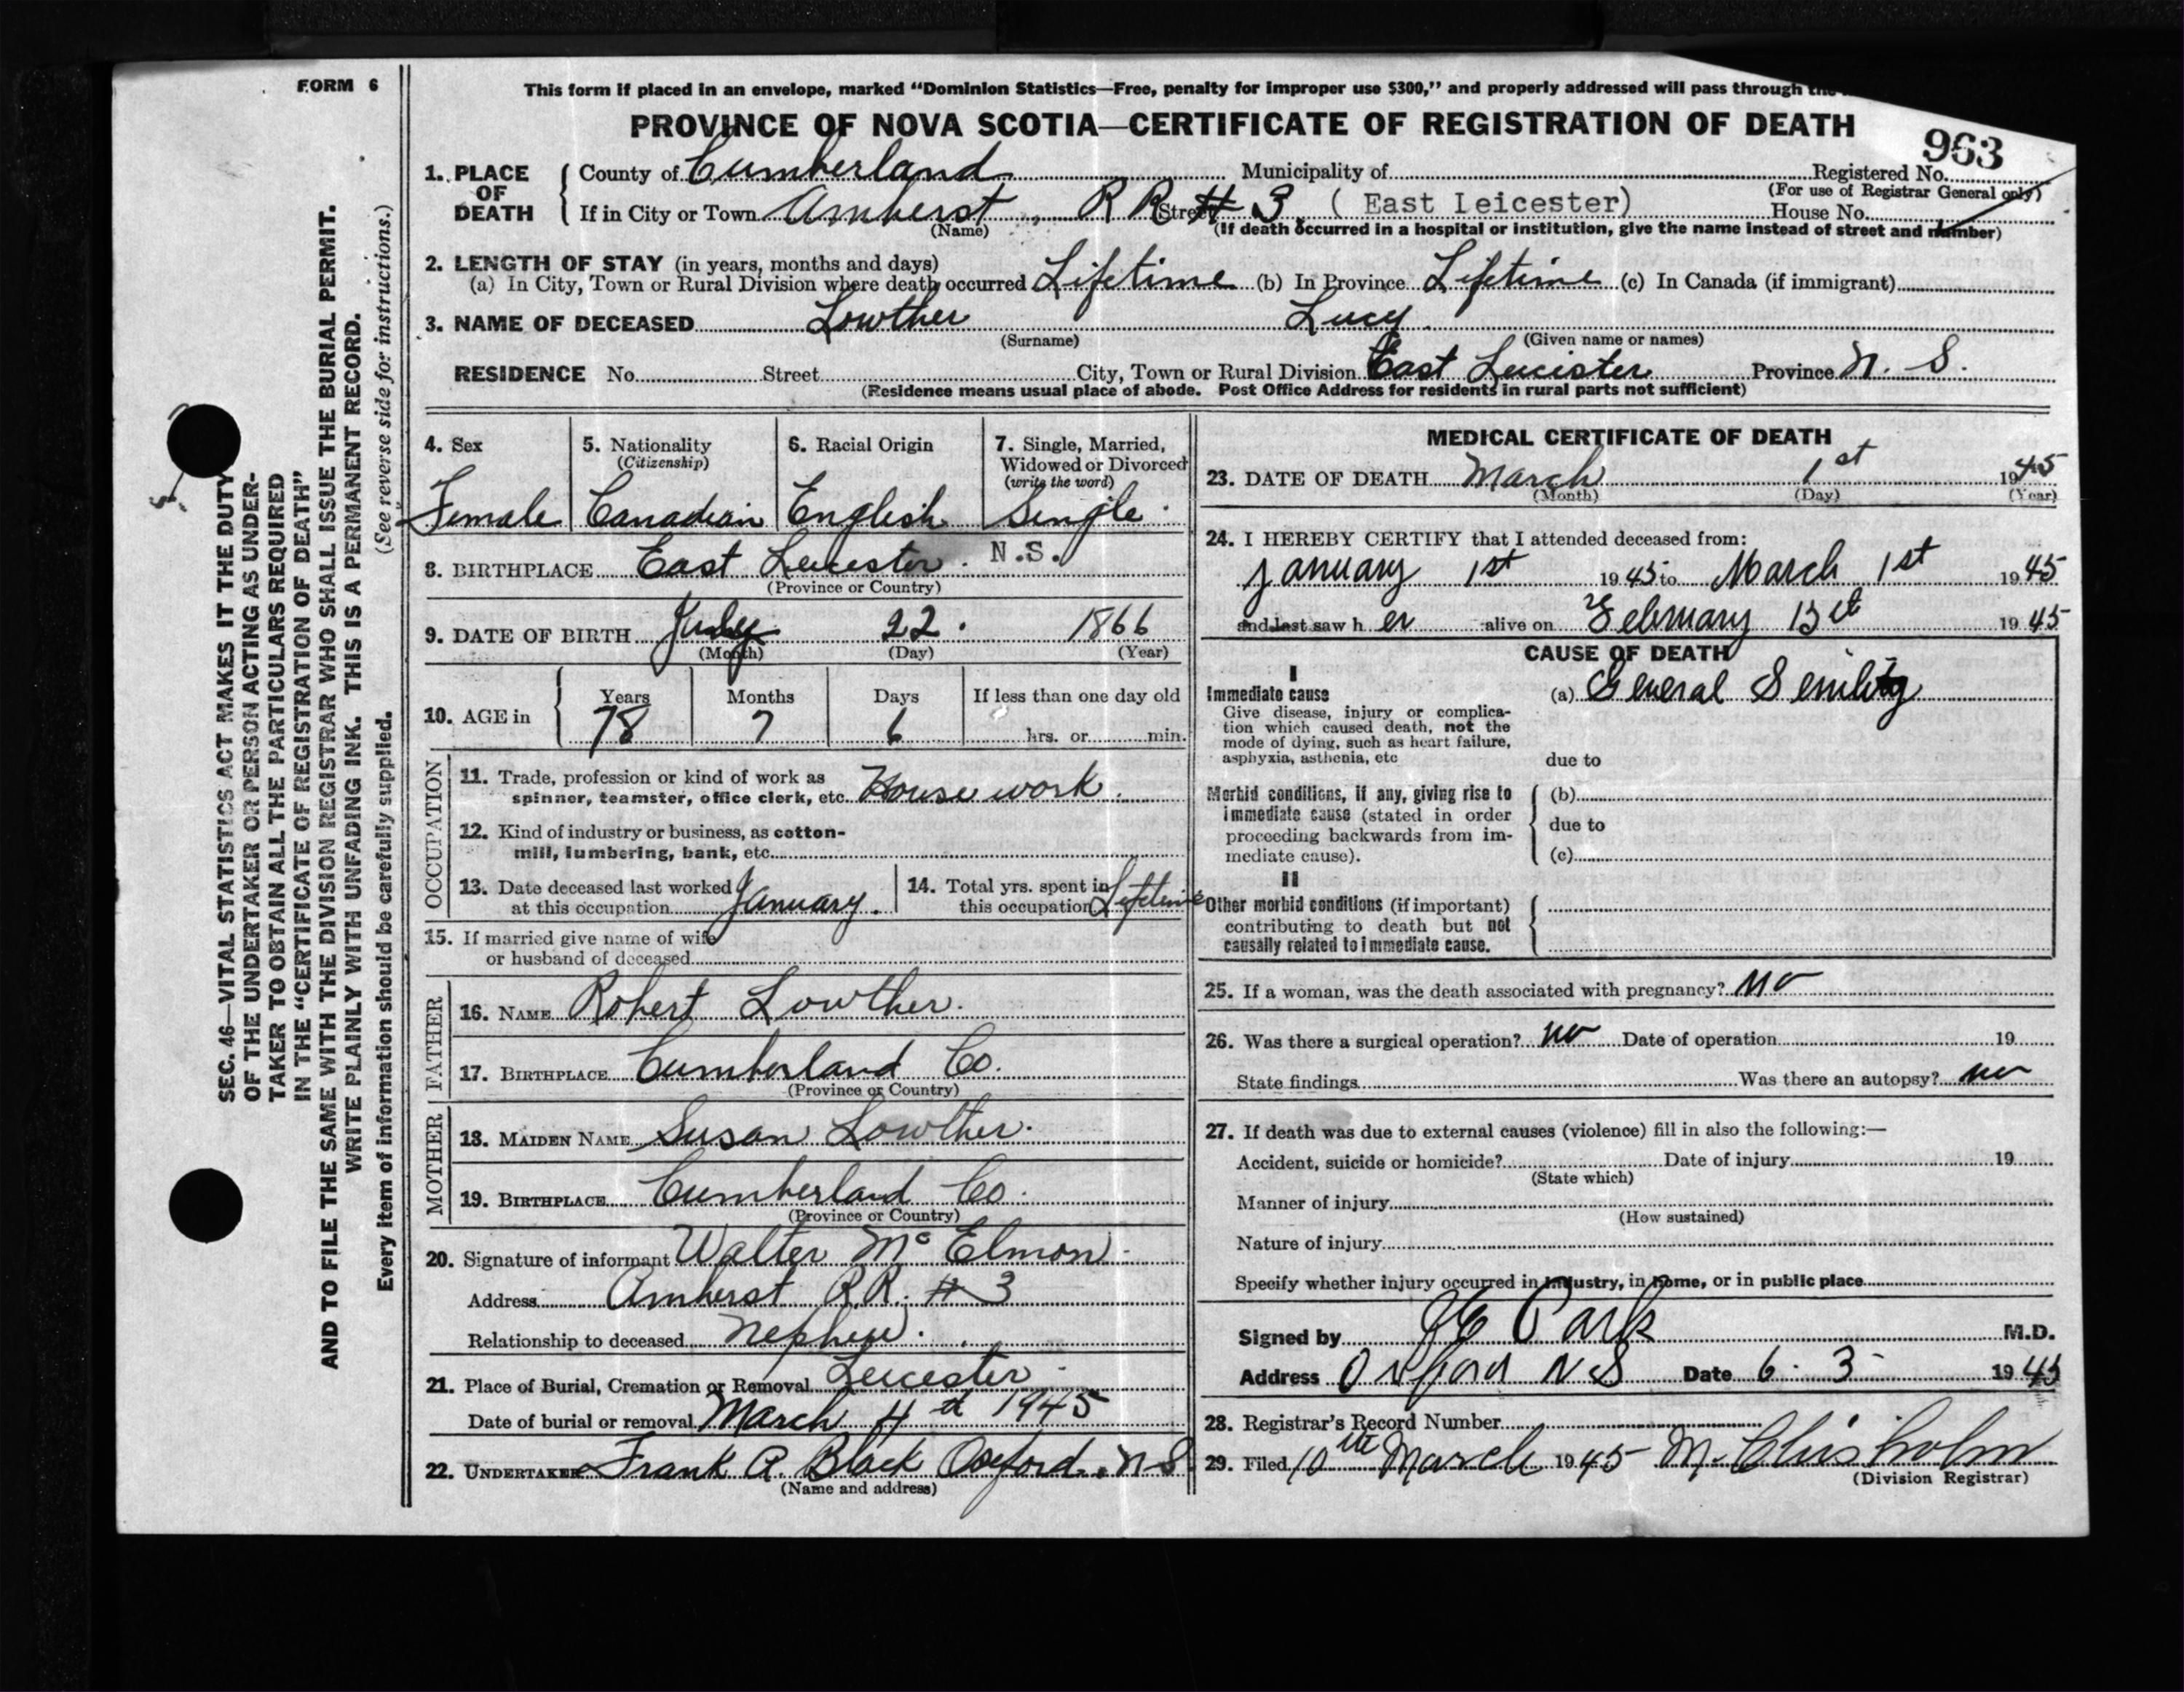 FORM 6
This form if placed in an envelope, marked "Dominion Statistics—Free, penalty for improper use $300," and properly addressed will pass through the
PROVINCE OF NOVA SCOTIA—CERTIFICATE OF REGISTRATION OF DEATH
963
1. PLACE OF DEATH
County of Cumberland Municipality of Registered No.
(For use of Registrar General only)
If in City or Town Amherst, R R Street # 3. ( East Leicester) House No.
(Name) (If death occurred in a hospital or institution, give the name instead of street and number)
2. LENGTH OF STAY (in years, months and days)
(a) In City, Town or Rural Division where death occurred Lifetime (b) In Province Lifetime (c) In Canada (if immigrant)
3. NAME OF DECEASED Lowther Lucy.
(Surname) (Given name or names)
RESIDENCE No. Street City, Town or Rural Division East Leicister Province N. S.
(Residence means usual place of abode. Post Office Address for residents in rural parts not sufficient)
4. Sex
Female
5. Nationality
(Citizenship)
Canadian
6. Racial Origin
English
7. Single, Married,
Widowed or Divorced
(write the word)
Single.
8. BIRTHPLACE East Leicester. N.S.
(Province or Country)
9. DATE OF BIRTH July 22. 1866
(Month) (Day) (Year)
10. AGE in
Years Months Days If less than one day old
78 7 6 hrs. or min.
OCCUPATION
11. Trade, profession or kind of work as
spinner, teamster, office clerk, etc. House work.
12. Kind of industry or business, as cotton-
mill, lumbering, bank, etc.
13. Date deceased last worked
at this occupation January.
14. Total yrs. spent in
this occupation Lifetime
15. If married give name of wife
or husband of deceased
FATHER
16. NAME Robert Lowther.
17. BIRTHPLACE Cumberland Co.
(Province or Country)
MOTHER
18. MAIDEN NAME Susan Lowther.
19. BIRTHPLACE Cumberland Co.
(Province or Country)
20. Signature of informant Walter McElmon.
Address Amherst R.R. # 3
Relationship to deceased Nephew.
21. Place of Burial, Cremation or Removal Leicester.
Date of burial or removal March 4 1945
22. UNDERTAKER Frank A. Black Oxford, N.S.
(Name and address)
MEDICAL CERTIFICATE OF DEATH
23. DATE OF DEATH March 1st 1945
(Month) (Day) (Year)
24. I HEREBY CERTIFY that I attended deceased from:
January 1st 1945 to March 1st 1945
and last saw h er alive on February 13 1945
CAUSE OF DEATH
I
Immediate cause (a) General Senility
Give disease, injury or complica-
tion which caused death, not the
mode of dying, such as heart failure,
asphyxia, asthenia, etc due to
Morbid conditions, if any, giving rise to (b)
immediate cause (stated in order
proceeding backwards from im- due to
mediate cause). (c)
II
Other morbid conditions (if important)
contributing to death but not
causally related to immediate cause.
25. If a woman, was the death associated with pregnancy? no
26. Was there a surgical operation? no Date of operation 19
State findings Was there an autopsy? no
27. If death was due to external causes (violence) fill in also the following:—
Accident, suicide or homicide? Date of injury 19
(State which)
Manner of injury
(How sustained)
Nature of injury
Specify whether injury occurred in industry, in home, or in public place
Signed by Park M.D.
Address Oxford N S Date 6. 3 - 1945
28. Registrar's Record Number
29. Filed 10th March 1945 M. Chisholm
(Division Registrar)
SEC. 46—VITAL STATISTICS ACT MAKES IT THE DUTY
OF THE UNDERTAKER OR PERSON ACTING AS UNDER-
TAKER TO OBTAIN ALL THE PARTICULARS REQUIRED
IN THE "CERTIFICATE OF REGISTRATION OF DEATH"
AND TO FILE THE SAME WITH THE DIVISION REGISTRAR WHO SHALL ISSUE THE BURIAL PERMIT.
WRITE PLAINLY WITH UNFADING INK. THIS IS A PERMANENT RECORD.
Every item of information should be carefully supplied. (See reverse side for instructions.)